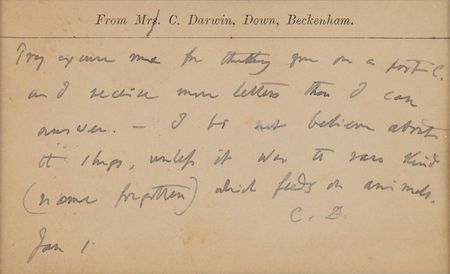 From Mrs. C. Darwin, Down, Beckenham.
Pray excuse me for thanking you on a post-C.
as I receive more letters than I can
answer. — I do not believe about
the slugs, unless it was the rare kind
(name forgotten) which feeds on animals.
C. D.
Jan 1